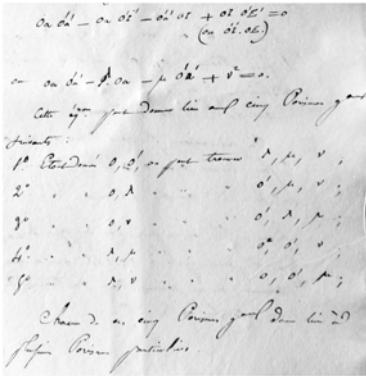 oa o'a' – oa o'i' – o'a' oi + oi o'i' = o
(oa o'i'. oi.)
ou oa o'a' – λ. oa – μ o'a' + ν² = o.
Cette éqon peut donner lieu aux cinq Porismes gaux
suivants :
1º Etant donné o, o', on peut trouver λ, μ, ν ;
2º " " o, λ " " o', μ, ν ;
3º " " o, ν " " o', λ, μ ;
4º " " λ, μ " " o, o', ν ;
5º " " λ, ν " " o, o', μ ;
Chacun de ces cinq Porismes gaux donne lieu à
plusieurs Porismes particuliers.